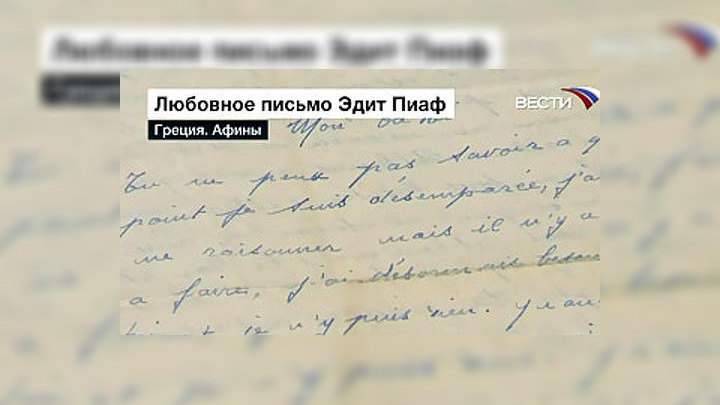 Любовное письмо Эдит Пиаф
ВЕСТИ
Греция. Афины
Mon
Tu ne peux pas savoir a q
point je suis désemparée, j'a
me raisonner mais il n'y a
a faire, j'ai désormais besoin
je n'y puis rien.